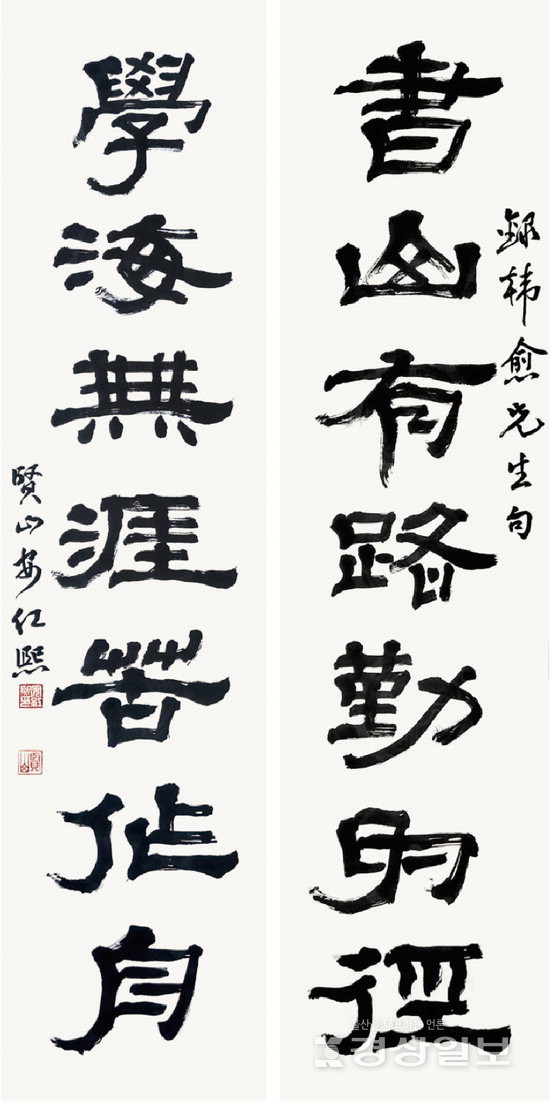 書山有路勤爲徑
錄韓愈先生句
學海無涯苦作舟
賢山安仁熙
경상일보